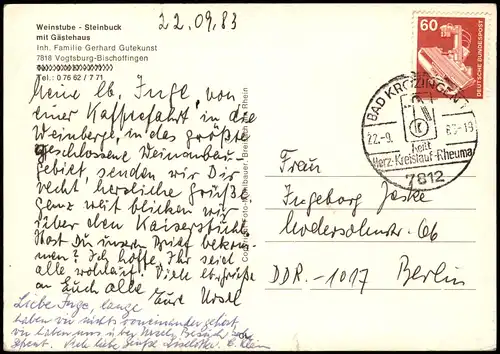 22.09.83
Weinstube - Steinbuck
mit Gästehaus
Inh. Familie Gerhard Gutekunst
7818 Vogtsburg-Bischoffingen
Tel.: 0 76 62 / 7 71
Meine lb. Inge, von
einer Kaffeefahrt in die
Weinberge, in das größte
geschlossene Weinanbau-
gebiet senden wir Dir
recht herzliche Grüße.
Ganz weit blicken wir
über den Kaiserstuhl.
Hast Du unsern Brief bekom-
men? Ich hoffe, Ihr seid
alle wohlauf. Viele
an Euch alle Eure Ursel
Liebe Inge, lange
haben wir nichts voneinander gehört,
wir haben uns über Besuch sehr
gefreut. Viele liebe Grüße Liselotte
60
DEUTSCHE BUNDESPOST
BAD KROZINGEN 1
22.-9. 83-19
heilt
Herz-Kreislauf-Rheuma
7812
Frau
Ingeborg Jeske
Modersohnstr. 66
DDR.-1017 Berlin